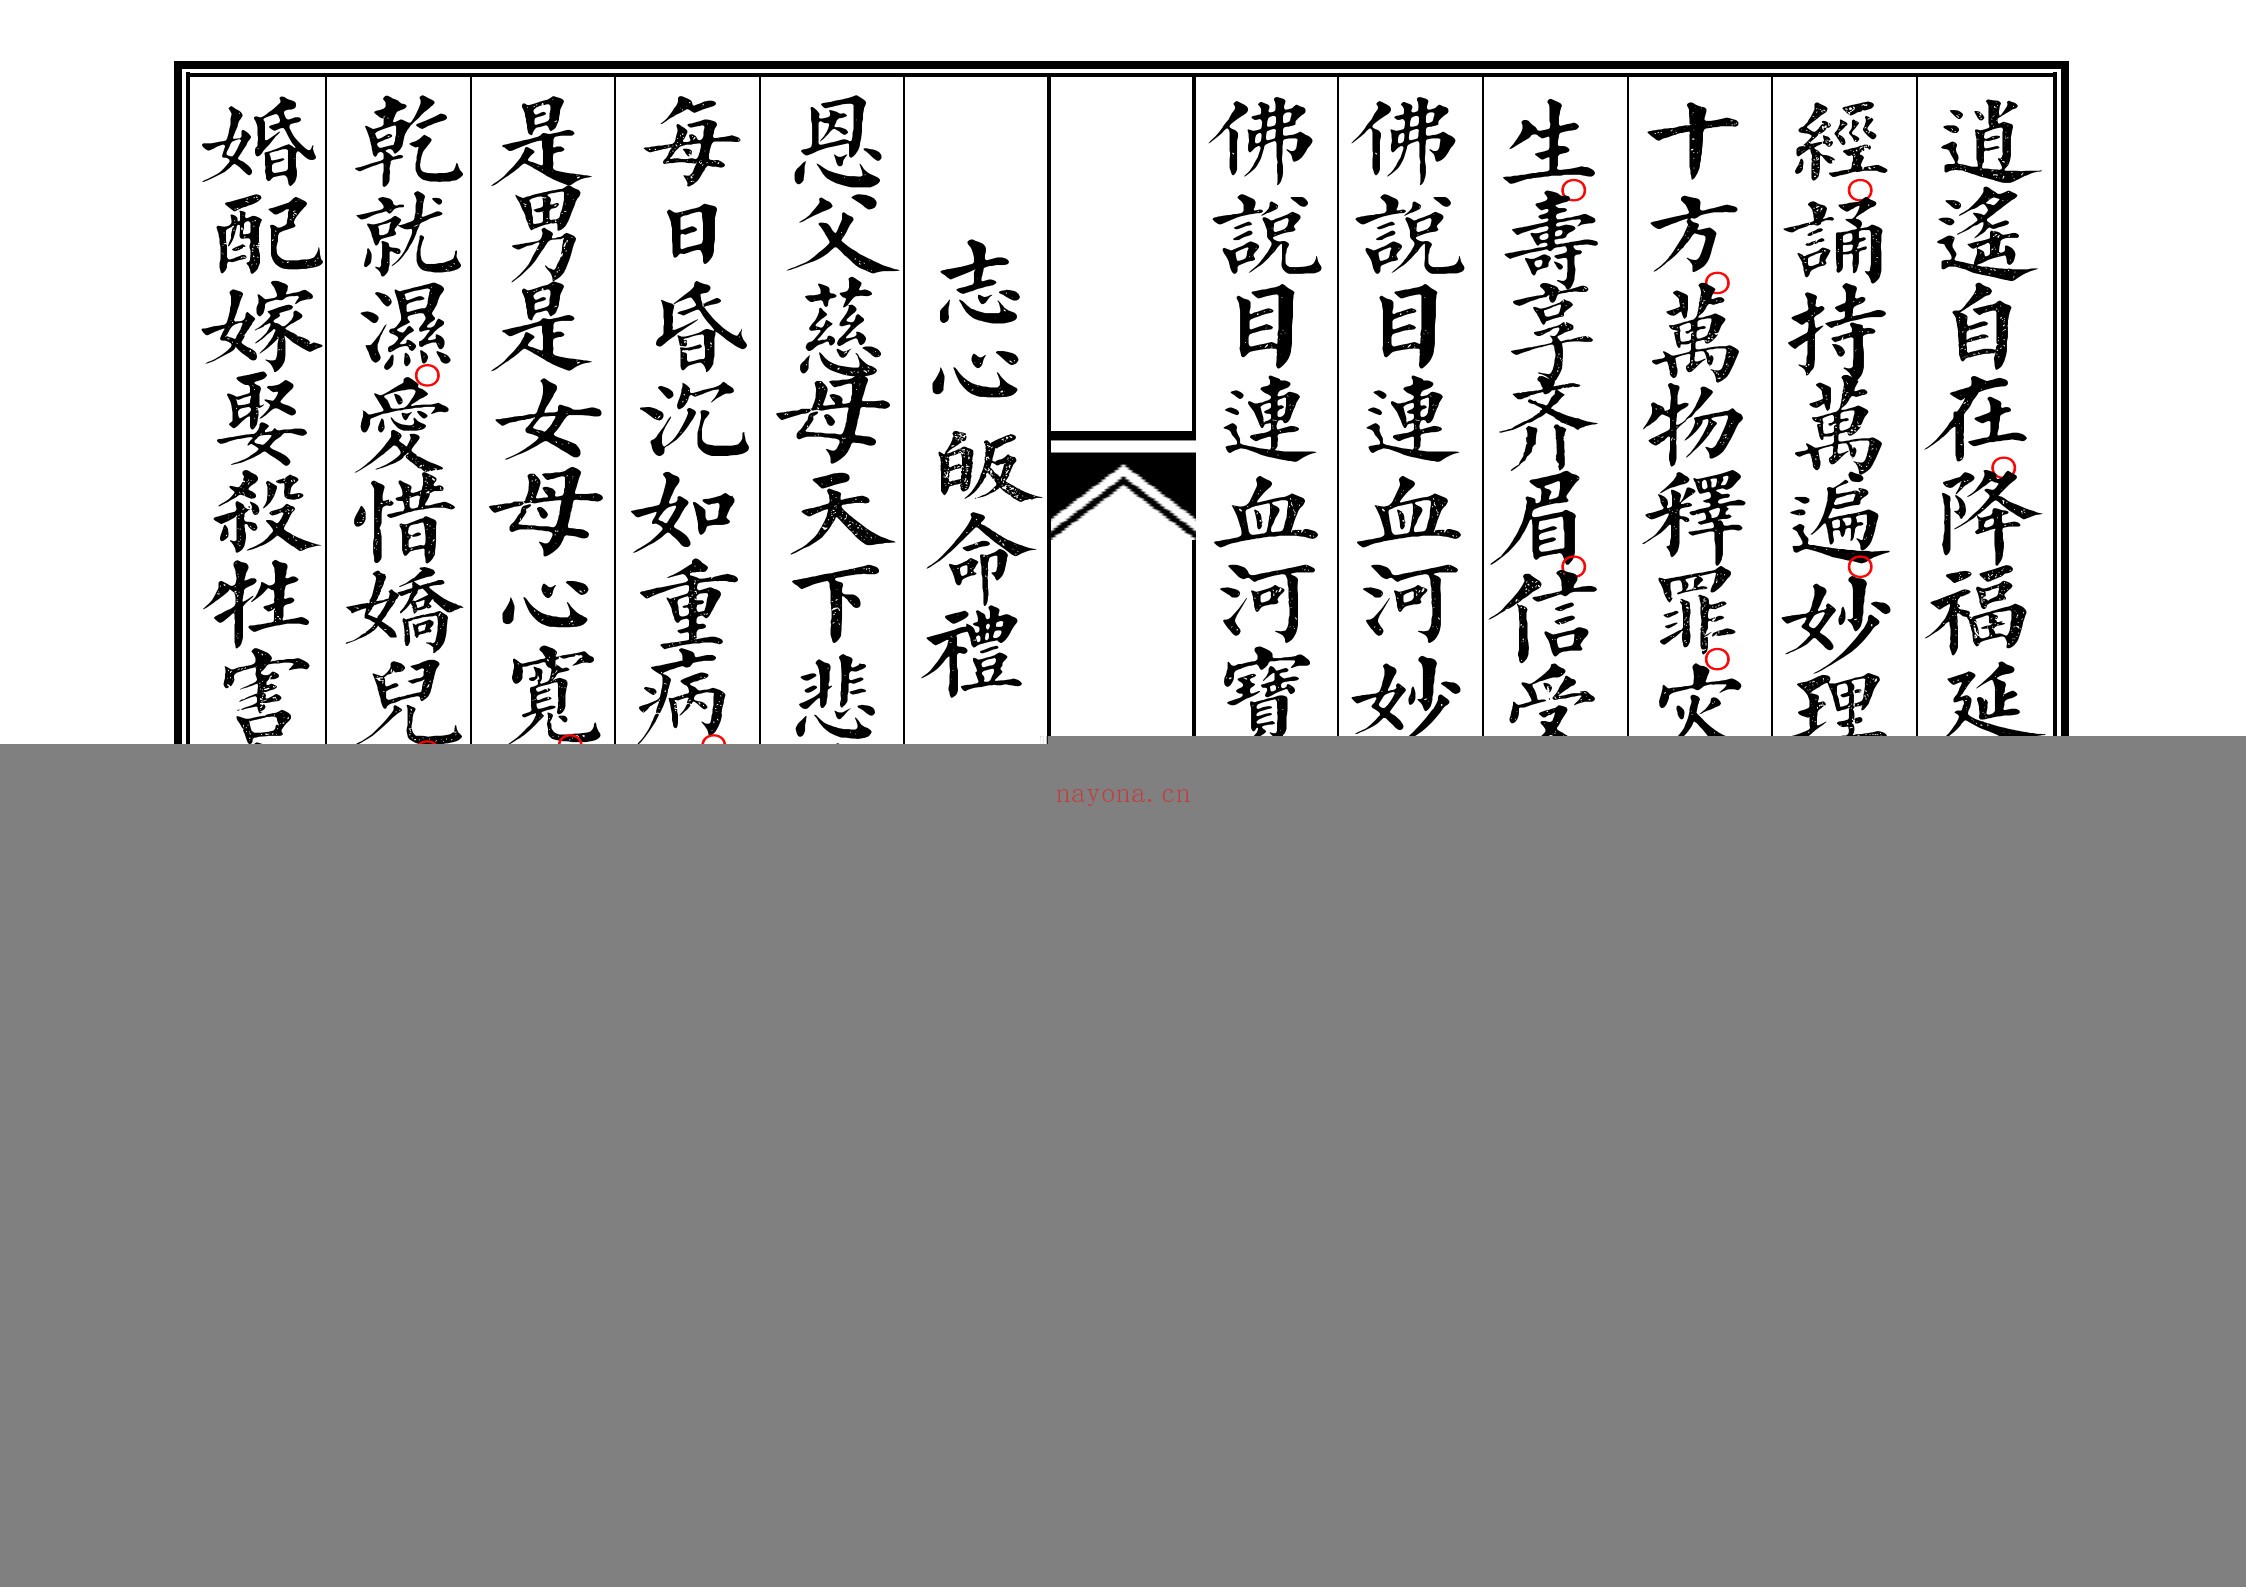 逍遙自在。降福延
經。誦持萬遍。妙理
十方。萬物釋罪。灾
生。壽享齐眉。信受
佛說目連血河妙
佛說目連血河寶
志心皈命禮
恩父慈母天下悲
每日昏沉如重病。
是男是女母心寬。
乾就濕。愛惜嬌兒。
婚配嫁娶殺牲害
nayona.cn